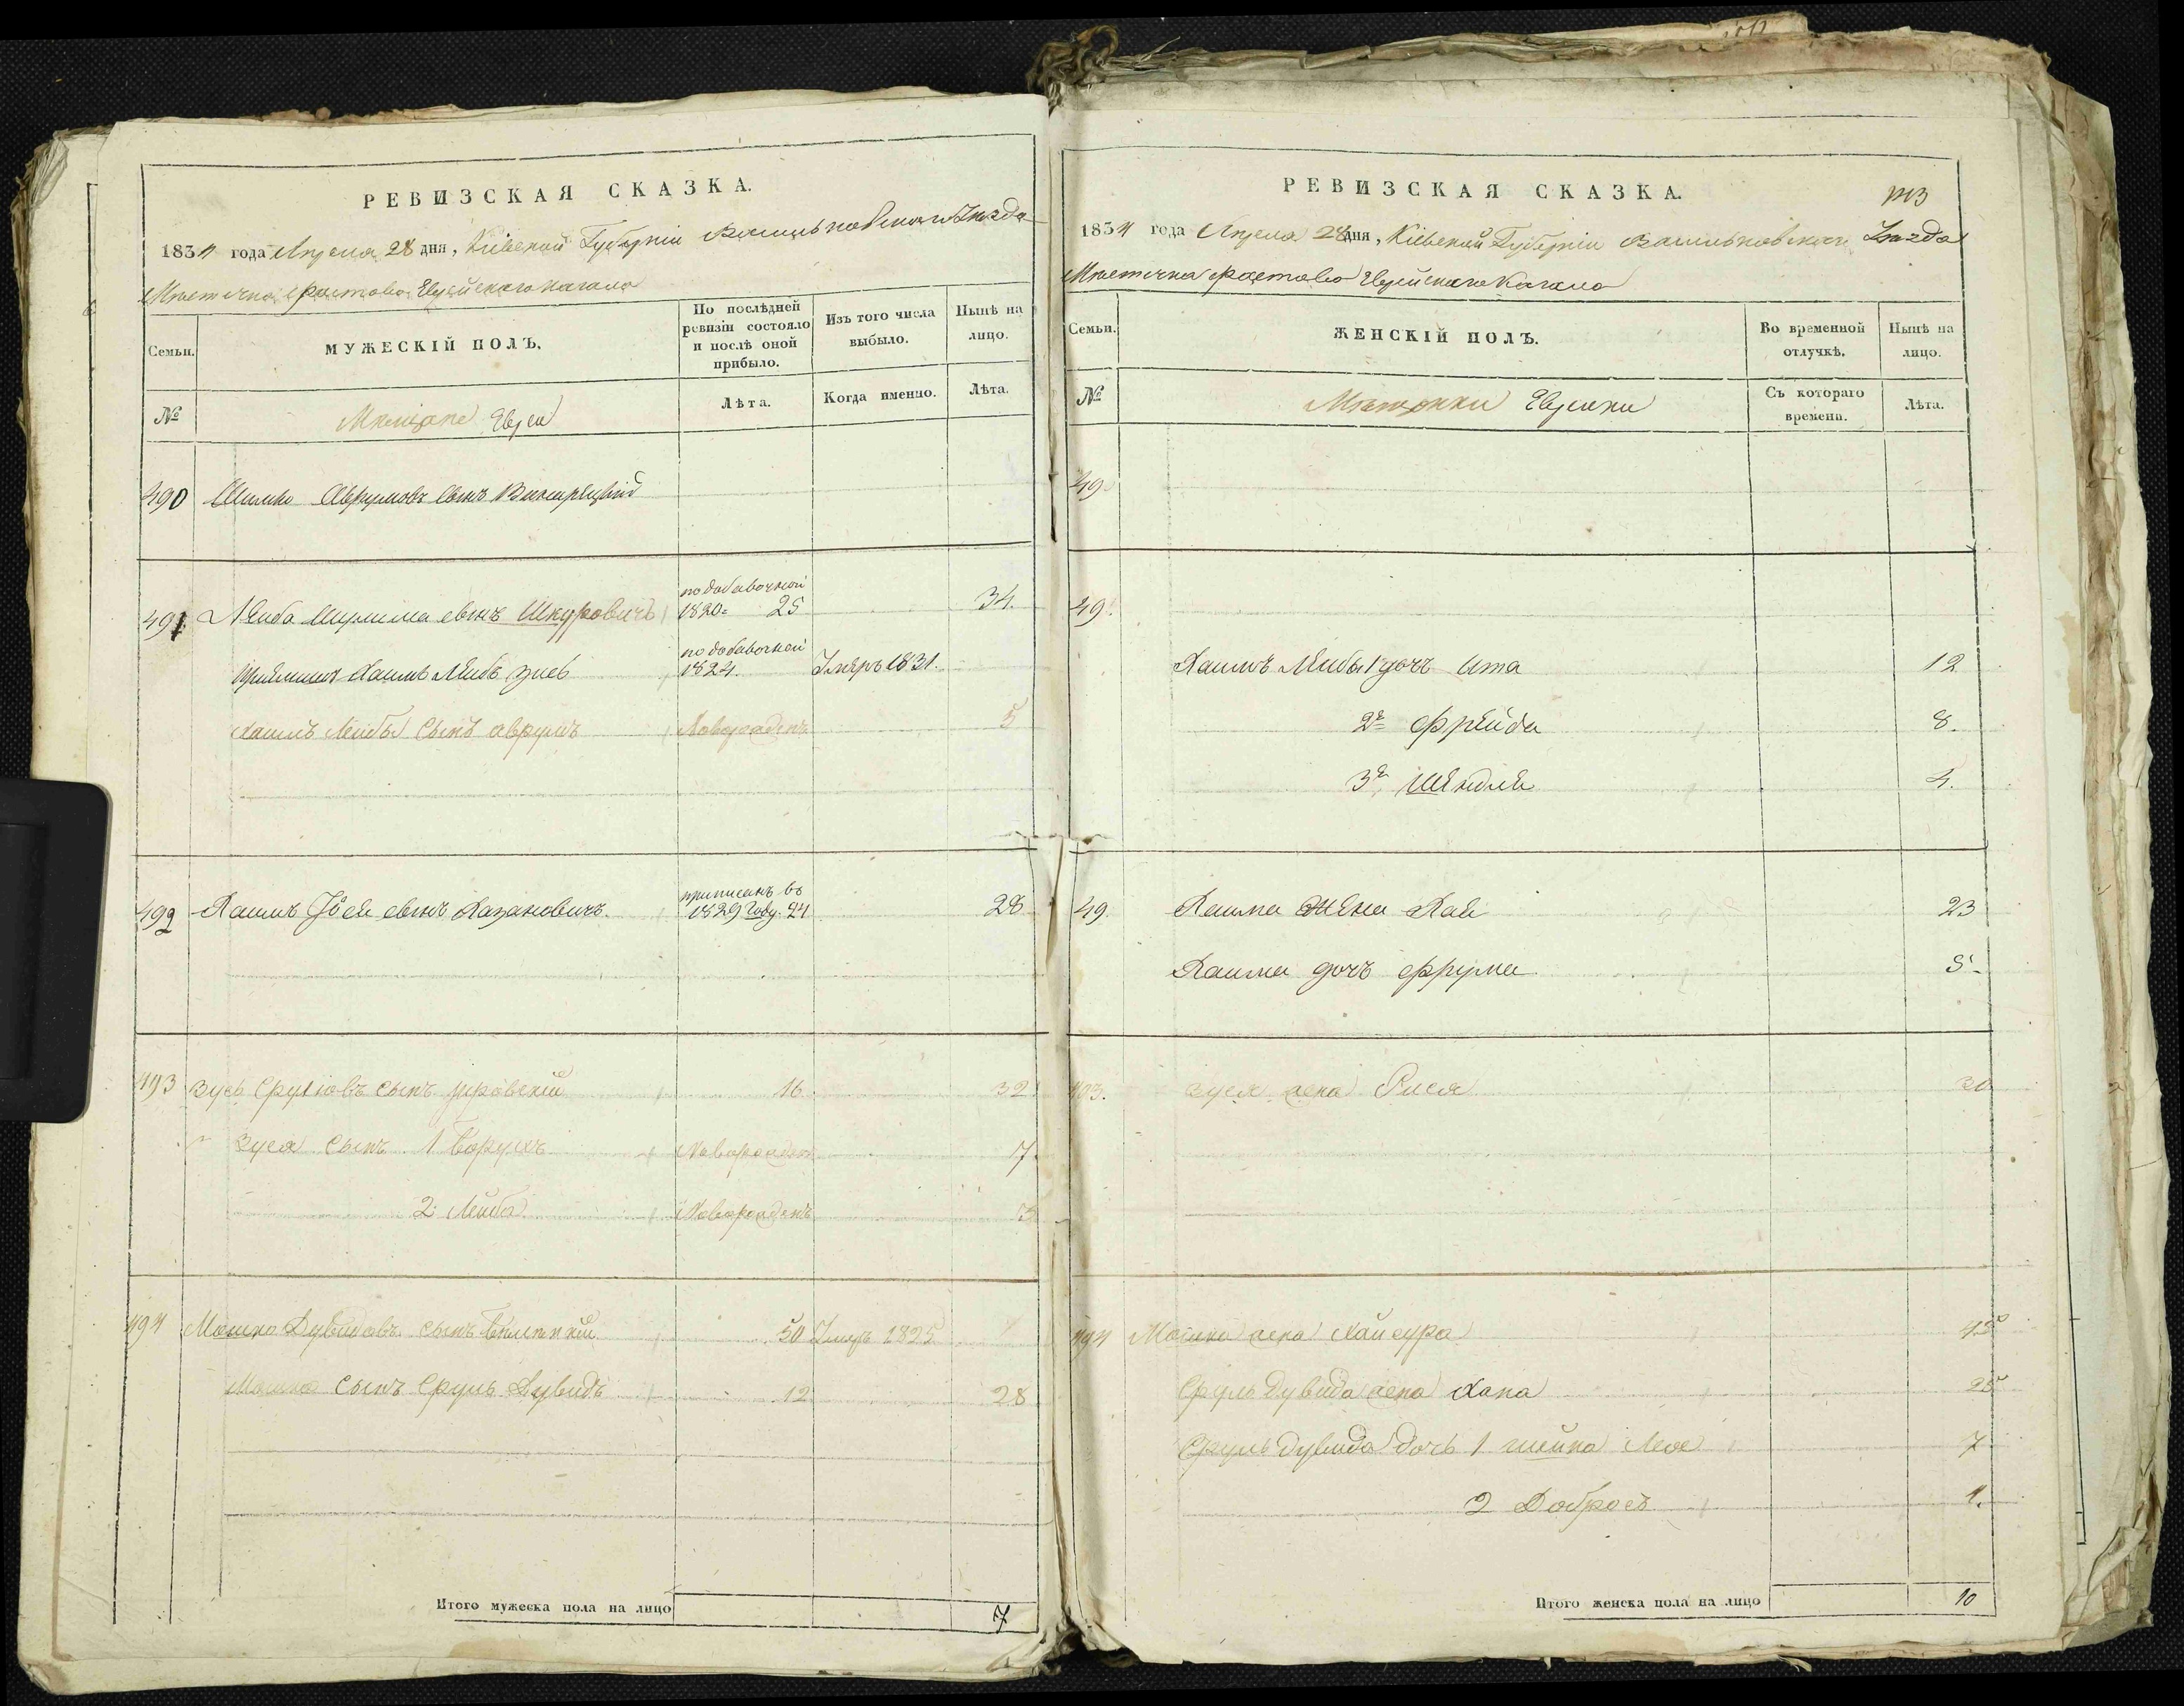 РЕВИЗСКАЯ СКАЗКА.
1834 года Апреля 28 дня, Кіевской Губерніи Васильковскаго Уезда
Местечка Фастова Еврейскаго Кагала
Семьи.
МУЖЕСКІЙ ПОЛЪ.
По послѣдней ревизіи состояло и послѣ оной прибыло.
Изъ того числа выбыло.
Нынѣ на лицо.
№
Мещане Евреи
Лѣта.
Когда именно.
Лѣта.
490 Шимко Аврумовъ сынъ
491 Лейба сынъ Шкуровичъ по добавочной 1820 25 34.
Хаимъ Лейбъ по добавочной 1824. Умеръ 1831.
Хаимъ Лейбы сынъ аврумъ Новорожденъ 5
492 Хаимъ сынъ Хазановичъ. приписанъ въ 1829 году. 24 28
493 Зусь Сруліовъ сынъ 16 32
Зуся сынъ 1 Борухъ Новорожденъ 7
2 Лейба Новорожденъ 3
494 Мошко Дувидовъ сынъ 50 Умеръ 1825
Мошка сынъ Сруль Дувидъ 12 28
Итого мужеска пола на лицо 7
РЕВИЗСКАЯ СКАЗКА.
1834 года Апреля 28 дня, Кіевской Губерніи Васильковскаго Уезда
Местечка Фастова Еврейскаго Кагала
Семьи.
ЖЕНСКІЙ ПОЛЪ.
Во временной отлучкѣ.
Нынѣ на лицо.
№
Мещанки Еврейки
Съ котораго времени.
Лѣта.
49
49
Хаимъ Лейбы 1 дочь Ита 12
2я Фрейда 8.
3я Шендля 4.
49 Хаима жена Хая 23
Хаима дочь Фрума 5.
493. Зуся жена Рися 30
494 Мошка жена Хайсура 45
Сруль Дувида жена Хана 25
Сруль Дувида дочь 1 Лея 7
2 1.
Итого женска пола на лицо 10